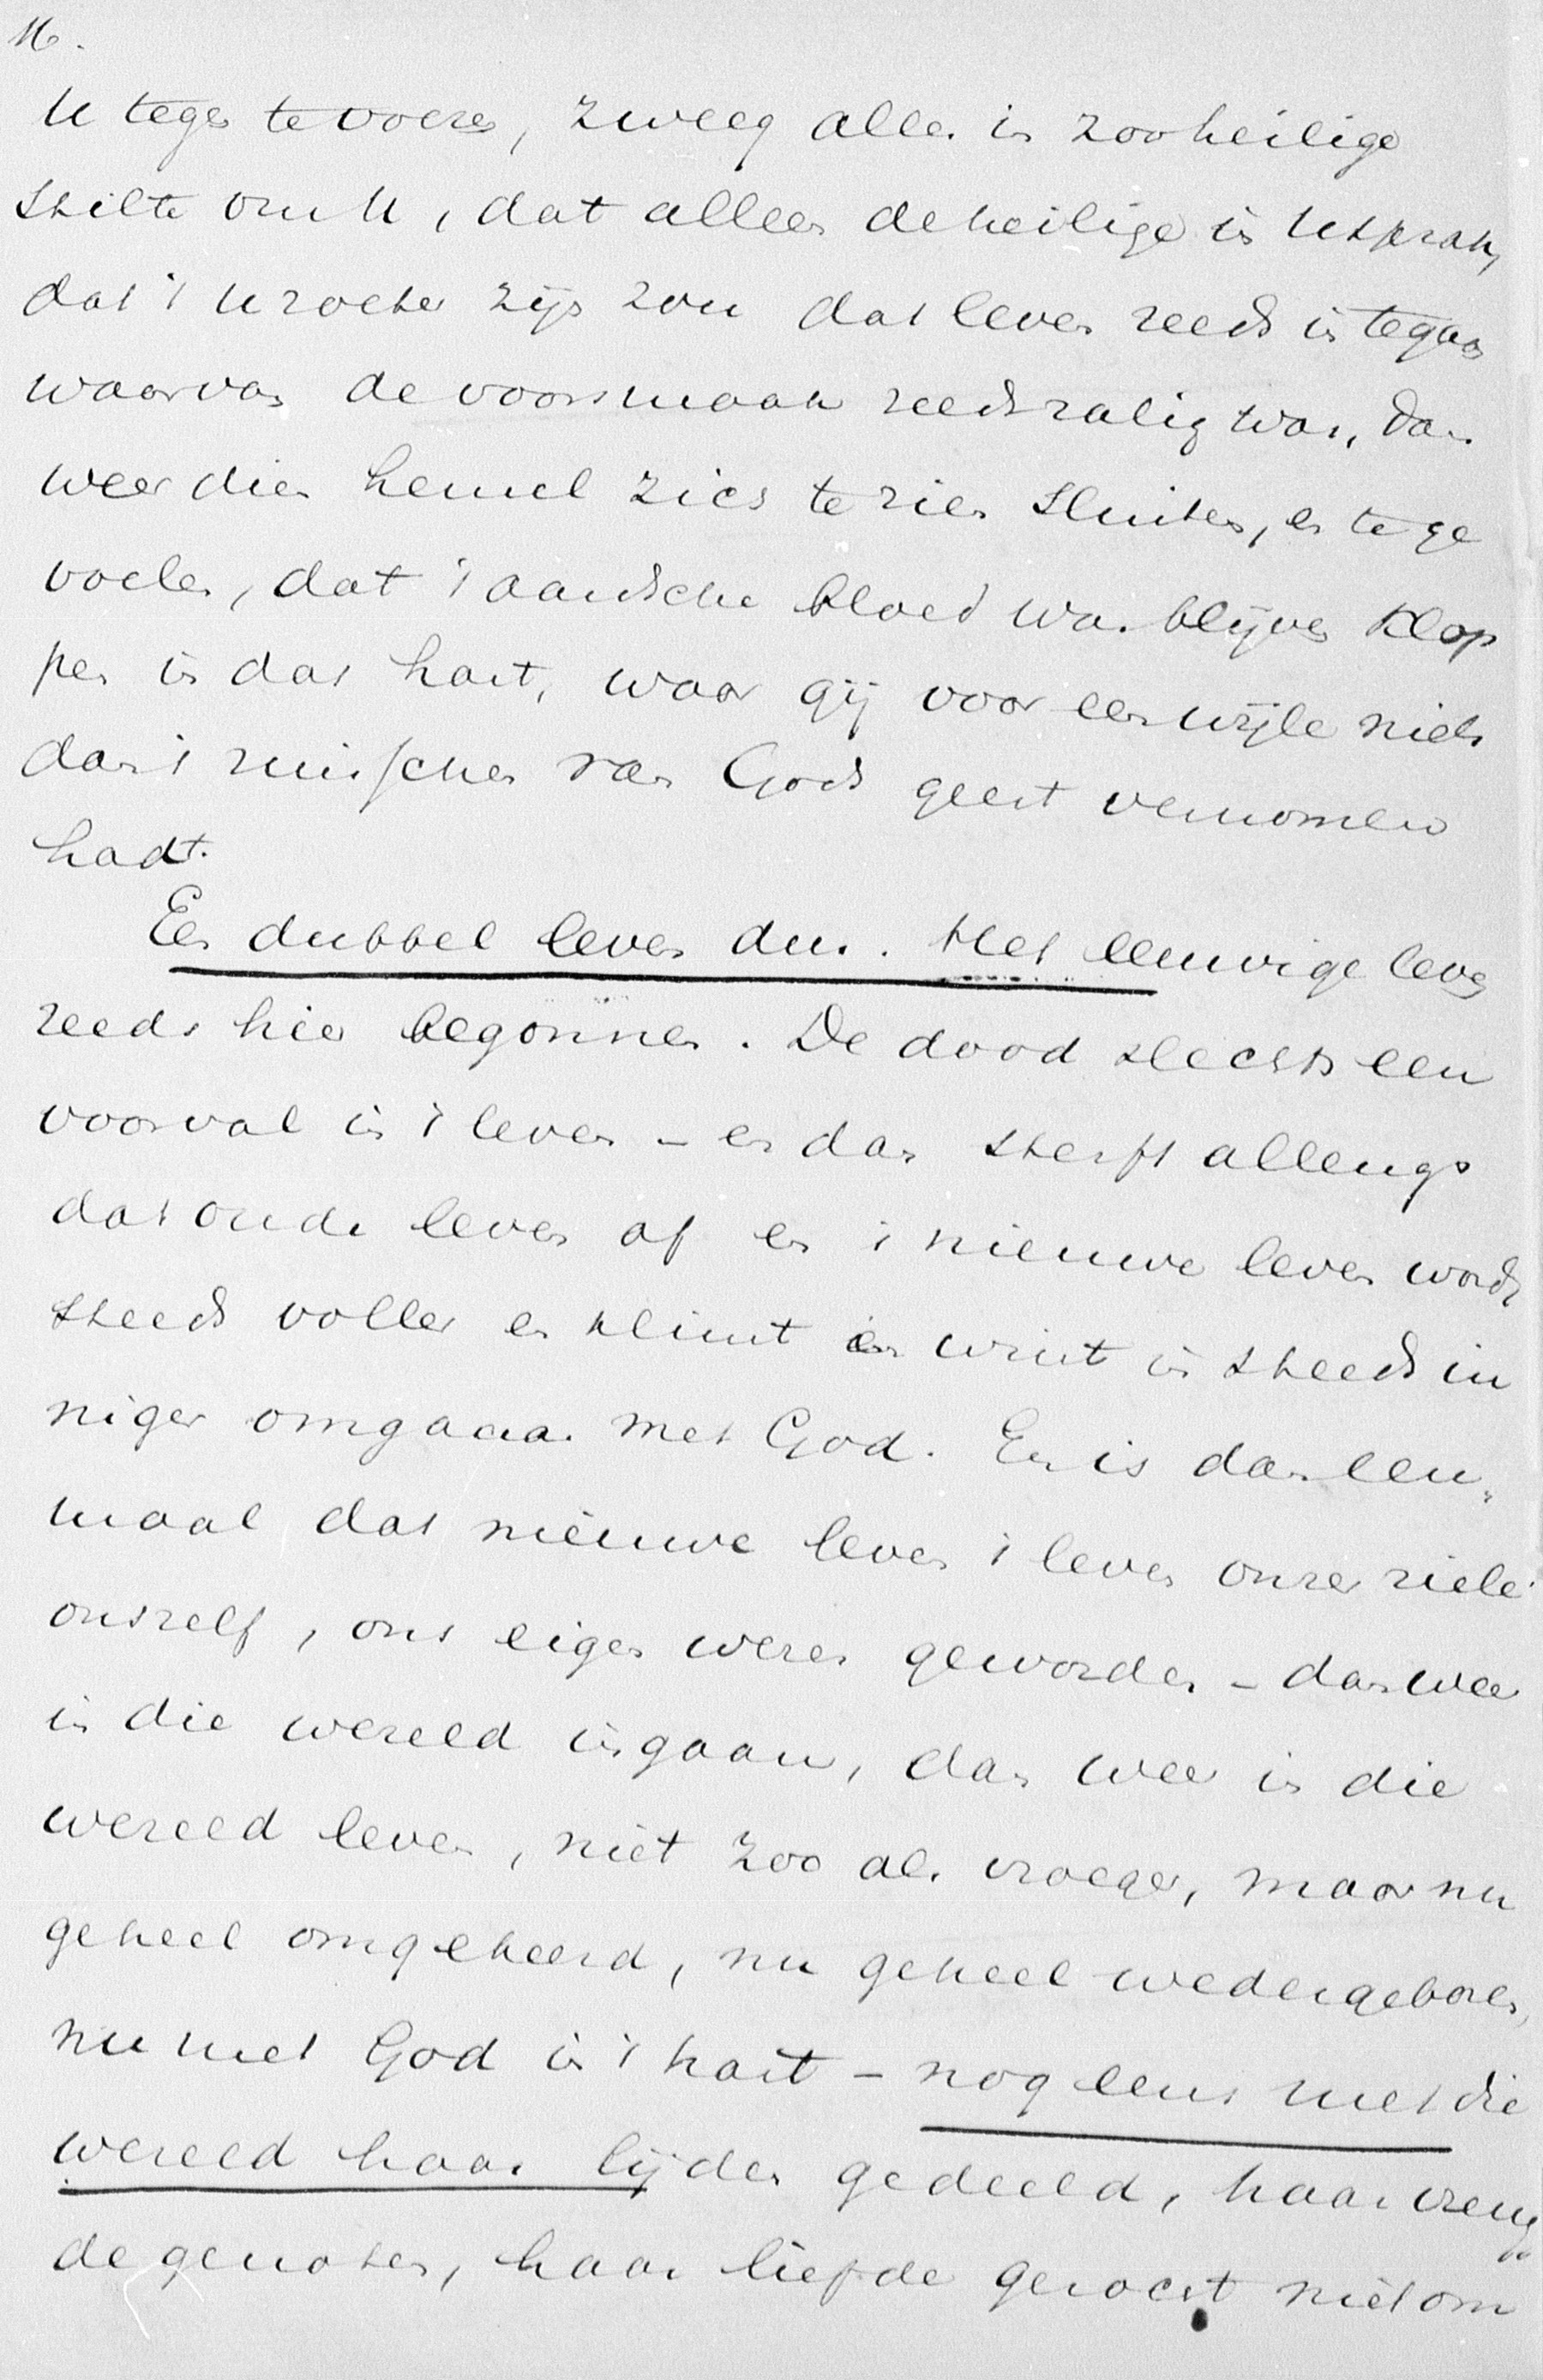 16.
U tegen te voeren, zweeg alles in zoo heilige
stilte om U, dat alleen de heilige in U sprak,
dat 't U zoeter zijn zou dat leven reeds in te gaan
waarvan de voorsmaak reeds zalig was, dan
weer dien hemel zich te zien sluiten, en te ge
voelen, dat 't aardsche bloed was blijven klop
pen in dat hart, waar gij voor een wijle niets
dan 't ruischen van Gods geest vernomen
hadt.
Een dubbel leven dus. Het eeuwige leven
reeds hier begonnen. De dood slechts een
voorval in 't leven – en dan sterft allengs
dat oude leven af en 't nieuwe leven wordt
steeds voller en klimt en wint in steeds in
niger omgaan met God. En is dan een,
maal dat nieuwe leven 't leven onzer ziele
onszelf, ons eigen wezen geworden – dan weer
in die wereld ingaan, dan weer in die
wereld leven, niet zoo als vroeger, maar nu
geheel omgekeerd, nu geheel wedergeboren,
nu met God in 't hart – nog eens met die
wereld haar lijden gedeeld, haar vreug
de genoten, haar liefde gezocht niet om